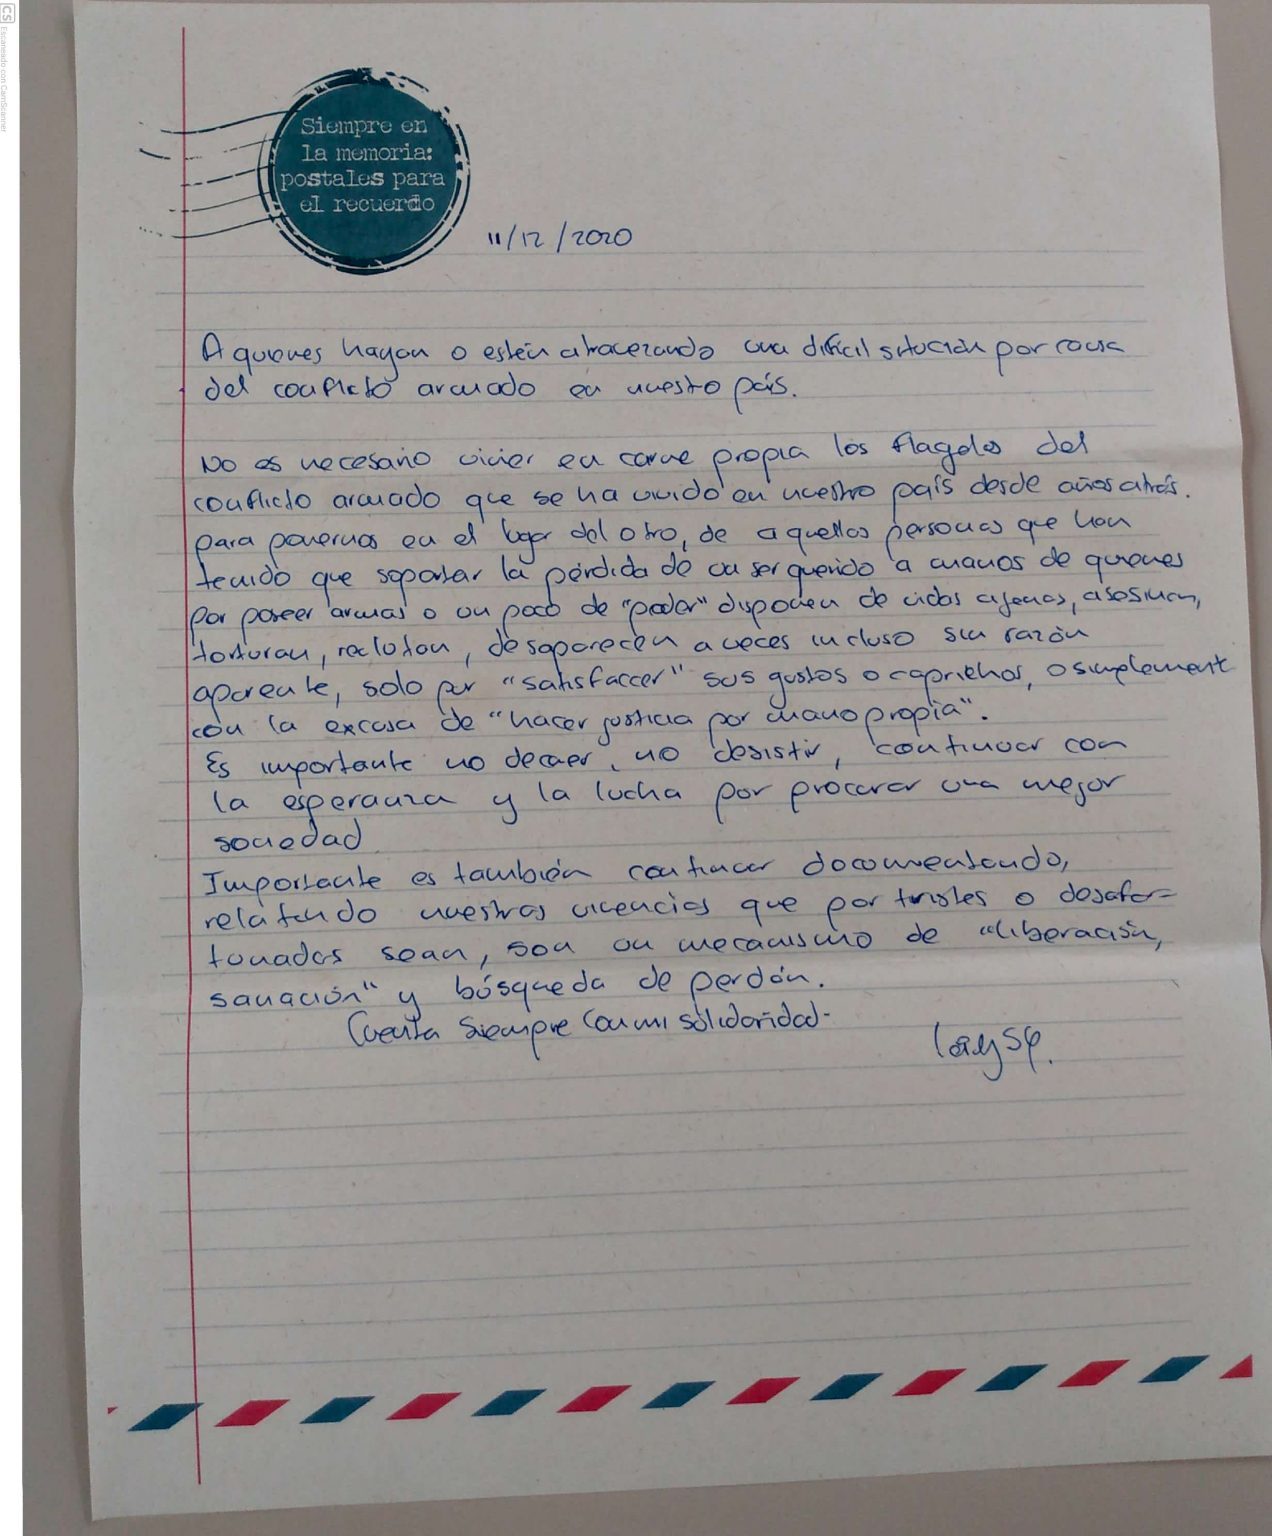 CS Escaneado con CamScanner
Siempre en
la memoria:
postales para
el recuerdo
11/12/2020
A quienes hayan o estén atravezando una difícil situación por causa
del conflicto armado en nuestro país.
No es necesario vivier en carne propia los flagelos del
conflicto armado que se ha vivido en nuestro país desde años atrás.
para ponernos en el lugar del otro, de aquellas personas que han
tenido que soportar la pérdida de un ser querido a manos de quienes
por poseer armas o un poco de "poder" disponen de vidas ajenas, asesinan,
torturan, reclutan, desaparecen a veces incluso sin razón
aparente, solo por "satisfaccer" sus gustos o caprichos, o simplemente
con la excusa de "hacer justicia por mano propia".
Es importante no decaer, no desistir, continuar con
la esperanza y la lucha por procurar una mejor
sociedad.
Importante es también continuar documentando,
relatando nuestras vivencias que por tristes o desafor-
tunadas sean, son un mecanismo de "liberación,
sanación" y búsqueda de perdón.
Cuenta siempre con mi solidaridad-